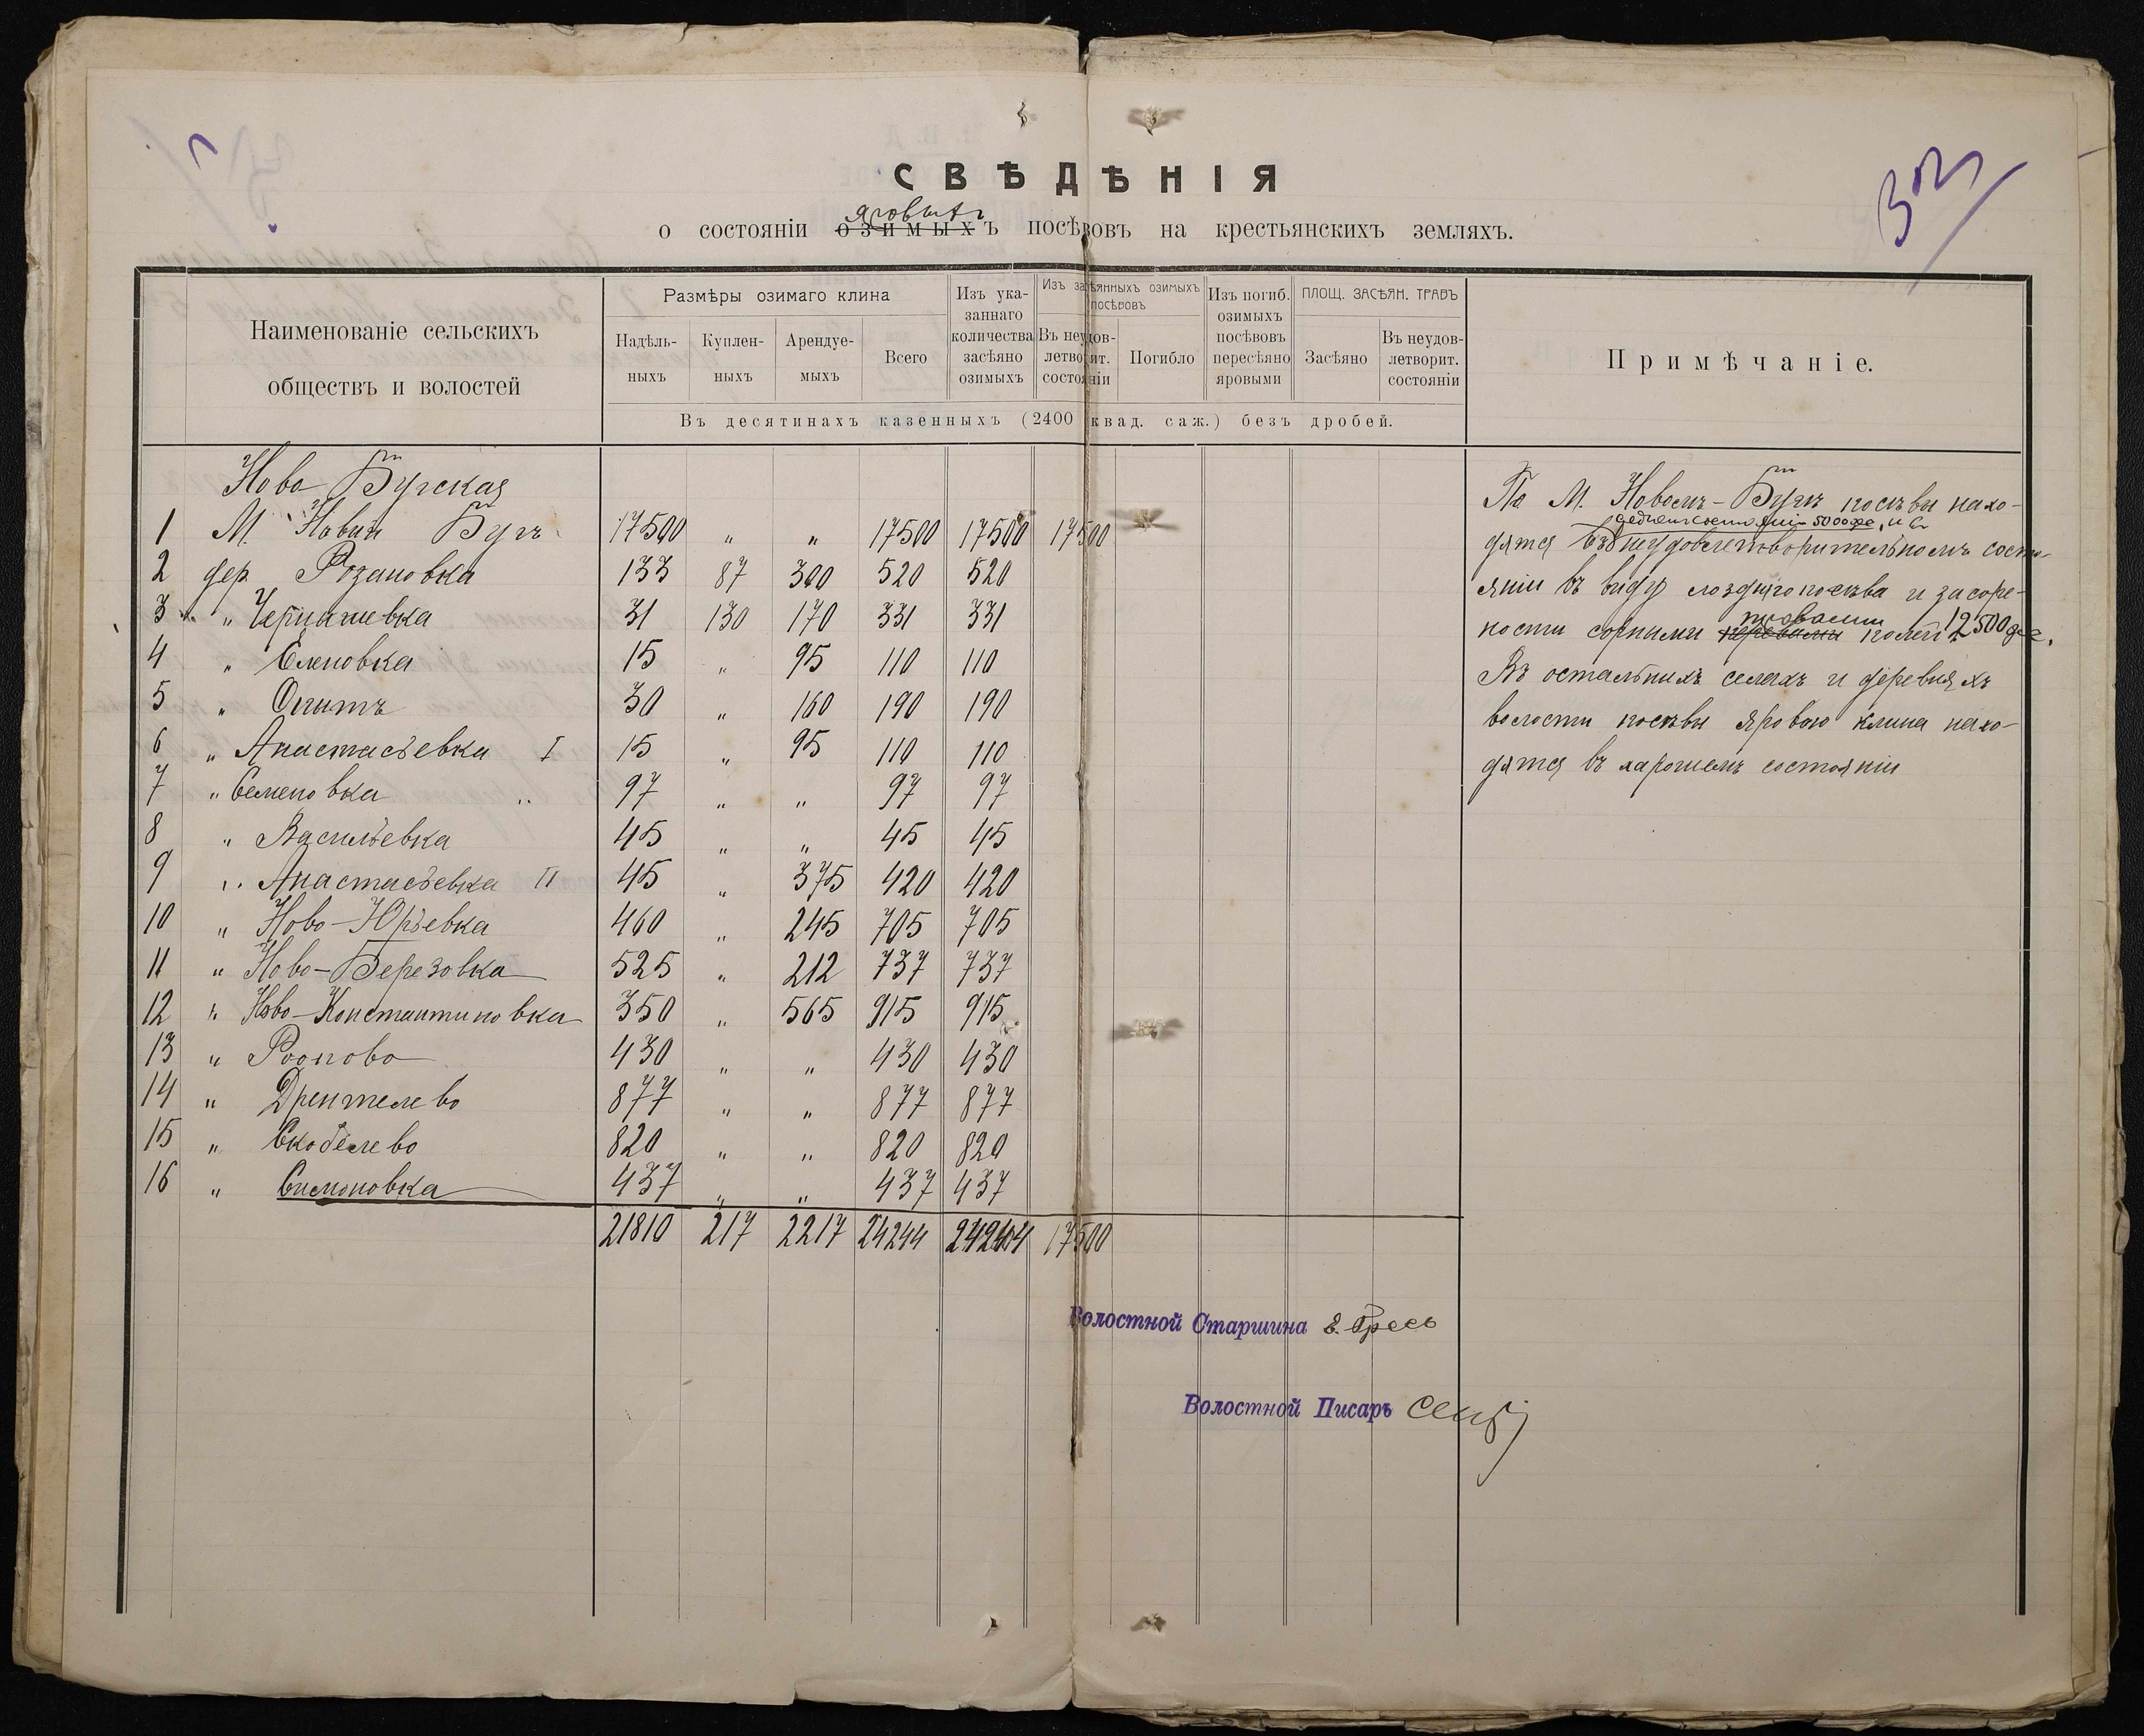 СВѢДѢНІЯ
яровыхъ
о состояніи озимыхъ посѣвовъ на крестьянскихъ земляхъ.
32
Наименованіе сельскихъ обществъ и волостей
Размѣры озимаго клина
Надѣль-ныхъ
Куплен-ныхъ
Арендуе-мыхъ
Всего
Изъ ука-заннаго количества засѣяно озимыхъ
Изъ засѣянныхъ озимыхъ посѣвовъ
Въ неудов-летворит. состояніи
Погибло
Изъ погиб. озимыхъ посѣвовъ пересѣяно яровыми
ПЛОЩ. ЗАСѢЯН. ТРАВЪ
Засѣяно
Въ неудов-летворит. состояніи
Примѣчаніе.
Въ десятинахъ казенныхъ (2400 квад. саж.) безъ дробей.
Ново-Бугская
1 М. Новый Бугъ 17500 " " 17500 17500 17500
2 дер. Розановка 133 87 300 520 520
3 " Чернашевка 31 130 170 331 331
4 " Еленовка 15 " 95 110 110
5 " Опытъ 30 " 160 190 190
6 " Анастасьевка I 15 " 95 110 110
7 " Семеновка 97 " " 97 97
8 " Васильевка 45 " " 45 45
9 " Анастасьевка II 45 " 375 420 420
10 " Ново-Юрьевка 460 " 245 705 705
11 " Ново-Березовка 525 " 212 737 737
12 " Ново-Константиновка 350 " 565 915 915
13 " Роопово 430 " " 430 430
14 " Дрентелево 877 " " 877 877
15 " Скобелево 820 " " 820 820
16 " Симоновка 437 " " 437 437
21810 217 2217 24244 24244 17500
По М. Новомъ-Бугѣ посѣвы нахо-
5000 де, и въ
дятся въ неудовлетворительномъ состо-
яніи въ виду поздняго посѣва и засоре-
травами
ности сорными полей 12500 дес.
Въ остальныхъ селахъ и деревняхъ
волости посѣвы ярового клина нахо-
дятся въ харошемъ состояніи
Волостной Старшина
Волостной Писарь